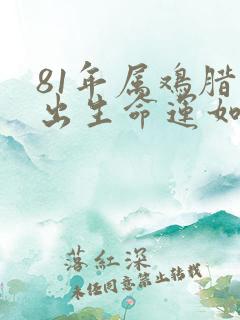 81年属鸡腊
出生命运如
落紅深
未经同意禁止转载